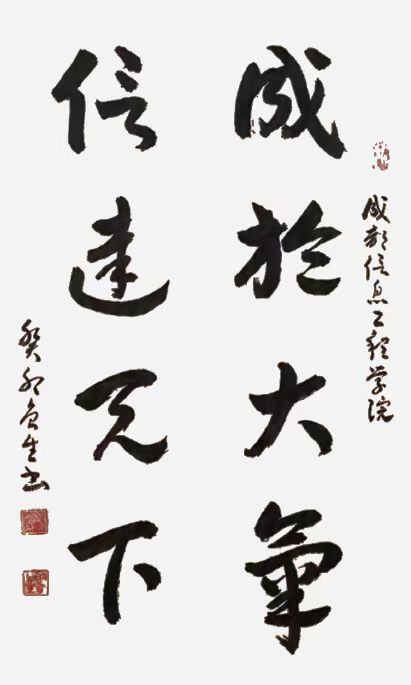 成都信息工程学院
成於大氣
信達天下
癸 生书